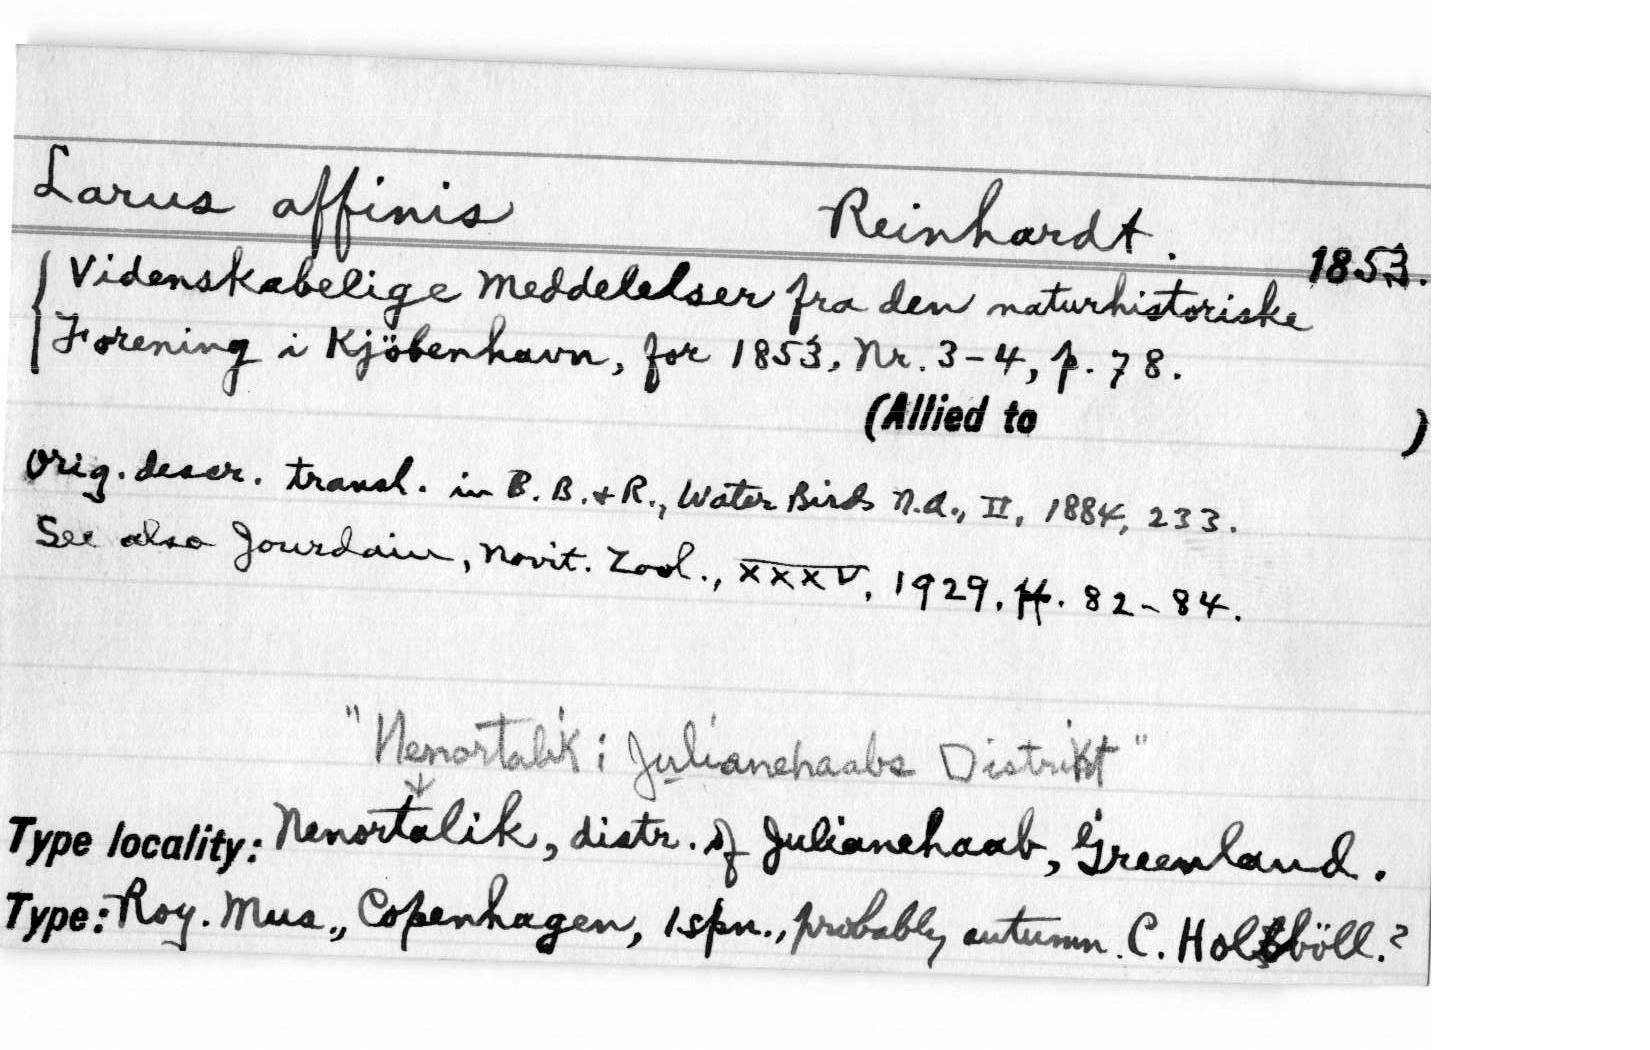 Larus affinis Reinhardt. 1853.
Videnskabelige Meddelelser fra den naturhistoriske
Forening i Kjöbenhavn, for 1853, Nr. 3-4, p. 78.
(Allied to )
Orig. descr. transl. in B. B. & R., Water Birds N.A., II, 1884, 233.
See also Jourdain, Novit. Zool., XXXV, 1929, pp. 82-84.
"Nenortalik i Julianehaabs Distrikt"
Type locality: Nenortalik, distr. of Julianehaab, Greenland.
Type: Roy. Mus., Copenhagen, 1 spn., probably autumn. C. Holböll.?